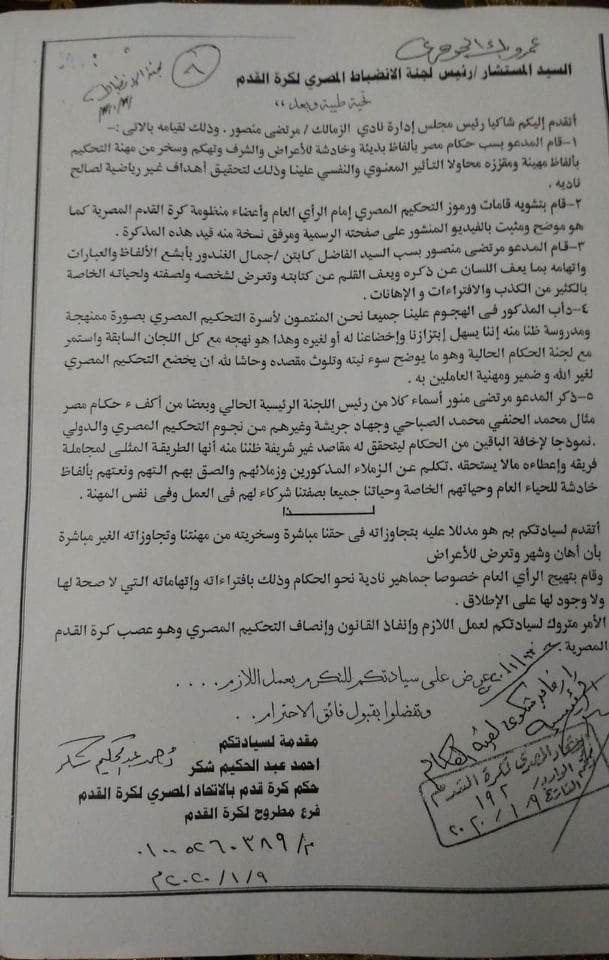 عمرو بك الجوهرى
٨
لجنة الانضباط
السيد المستشار /رئيس لجنة الانضباط المصري لكرة القدم
تحية طيبة وبعد ،،
أتقدم إليكم شاكيا رئيس مجلس إدارة نادي الزمالك / مرتضى منصور . وذلك لقيامه بالاتى :-
١-قام المدعو بسب حكام مصر بألفاظ بذيئة وخادشة للأعراض والشرف وتهكم وسخر من مهنة التحكيم
بألفاظ مهينة ومقززه محاولا التأثير المعنوي والنفسي علينا وذلك لتحقيق أهداف غير رياضية لصالح
ناديه .
٢-قام بتشويه قامات ورموز التحكيم المصري إمام الرأي العام وأعضاء منظومة كرة القدم المصرية كما
هو موضح ومثبت بالفيديو المنشور على صفحته الرسمية ومرفق نسخة منه قيد هذه المذكرة .
٣-قام المدعو مرتضى منصور بسب السيد الفاضل كابتن /جمال الغندور بأبشع الألفاظ والعبارات
واتهامه بما يعف اللسان عن ذكره ويعف القلم عن كتابته وتعرض لشخصه ولصفته ولحياته الخاصة
بالكثير من الكذب والافتراءات و الإهانات .
٤-دأب المذكور فى الهجوم علينا جميعا نحن المنتمون لأسرة التحكيم المصري بصورة ممنهجة
ومدروسة ظنا منه إننا يسهل إبتزازنا وإخضاعنا له أو لغيره وهذا هو نهجه مع كل اللجان السابقة واستمر
مع لجنة الحكام الحالية وهو ما يوضح سوء نيته وتلوث مقصده وحاشا لله ان يخضع التحكيم المصري
لغير الله و ضمير ومهنية العاملين به .
٥-ذكر المدعو مرتضى منور أسماء كلا من رئيس اللجنة الرئيسية الحالي وبعضا من أكف ء حكام مصر
مثال محمد الحنفي محمد الصباحي وجهاد جريشة وغيرهم من نجوم التحكيم المصري والدولي
.نموذجا لإخافة الباقين من الحكام ليتحقق له مقاصد غير شريفة ظننا منه أنها الطريقة المثلى لمجاملة
فريقه وإعطاءه مالا يستحقه .تكلم عن الزملاء المذكورين وزملائهم والصق بهم التهم ونعتهم بألفاظ
خادشة للحياء العام وحياتهم الخاصة وحياتنا جميعا بصفتنا شركاء لهم فى العمل وفى نفس المهنة .
لــــذا
أتقدم لسيادتكم بم هو مدللا عليه بتجاوزاته فى حقنا مباشرة وسخريته من مهنتنا وتجاوزاته الغير مباشرة
بأن أهان وشهر وتعرض للأعراض
وقام بتهيج الرأي العام خصوصا جماهير نادية نحو الحكام وذلك بافتراءاته وإتهاماته التي لا صحة لها
ولا وجود لها على الإطلاق .
الأمر متروك لسيادتكم لعمل اللازم وإنفاذ القانون وإنصاف التحكيم المصري وهو عصب كرة القدم
المصرية .
عرض على سيادتكم للتكرم بعمل اللازم . . . .
وتفضلوا بقبول فائق الاحترام . . .
مقدمة لسيادتكم
احمد عبد الحكيم شكر
احمد عبد الحكيم شكر
حكم كرة قدم بالاتحاد المصري لكرة القدم
فرع مطروح لكرة القدم
م/ ٠١٠٠٥٢٦٠٣٨٩
٢٠٢٠/١/٩م
الاتحاد المصرى لكرة القدم
١٩٢
٢٠٢٠/١/٩